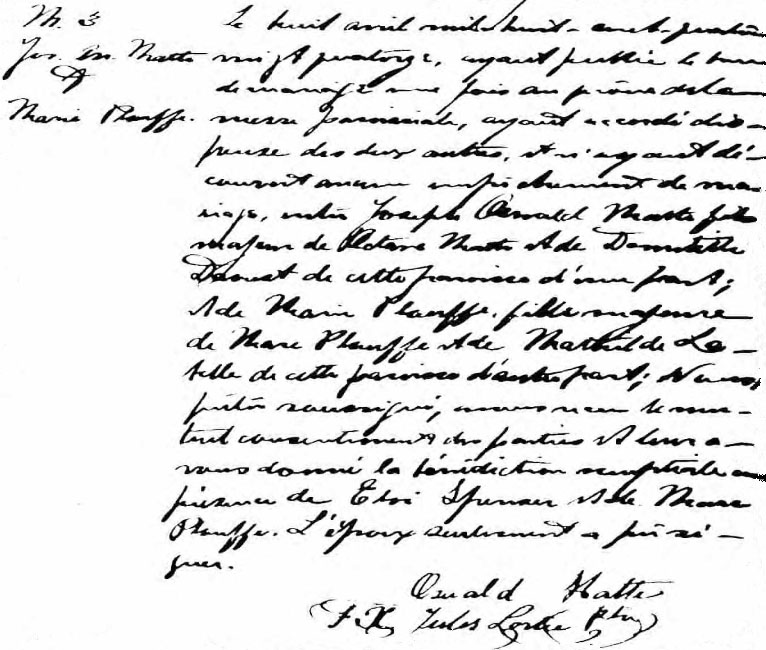 M. 3
Jos. Os. Matte
&
Marie Plouffe.
Le huit avril mil-huit-cent-quatre
vingt quatorze, ayant publié le banc
de mariage une fois au prône de la
messe paroissiale, ayant accordé dis-
pense des deux autres, et n'ayant dé-
couvert aucun empêchement de ma-
riage, entre Joseph Oswald Matte fils
majeur de Octave Matte et de Domitille
Douest de cette paroisse d'une part;
et de Marie Plouffe, fille majeure
de Marc Plouffe et de Mathilde La-
belle de cette paroisse d'autre part; Nous,
prêtre soussigné, avons reçu le mu-
tuel consentement des parties et leur a-
vons donné la bénédiction nuptiale en
présence de Eloi Spenser et de Marc
Plouffe. L'époux seulement a pu si-
gner.
Oswald Matte
F. X. Jules Lortie Ptre